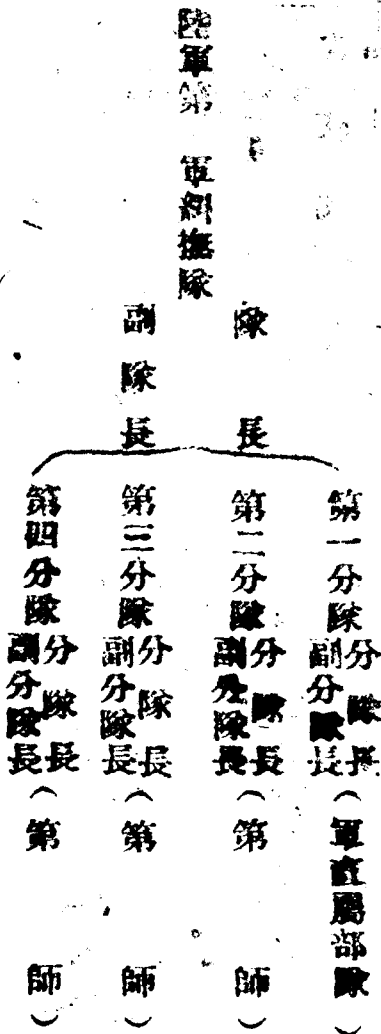 陸軍第　軍糾撫隊
隊長
副隊長
第一分隊 分隊長 副分隊長（軍直屬部隊）
第二分隊 分隊長 副分隊長（第　師）
第三分隊 分隊長 副分隊長（第　師）
第四分隊 分隊長 副分隊長（第　師）